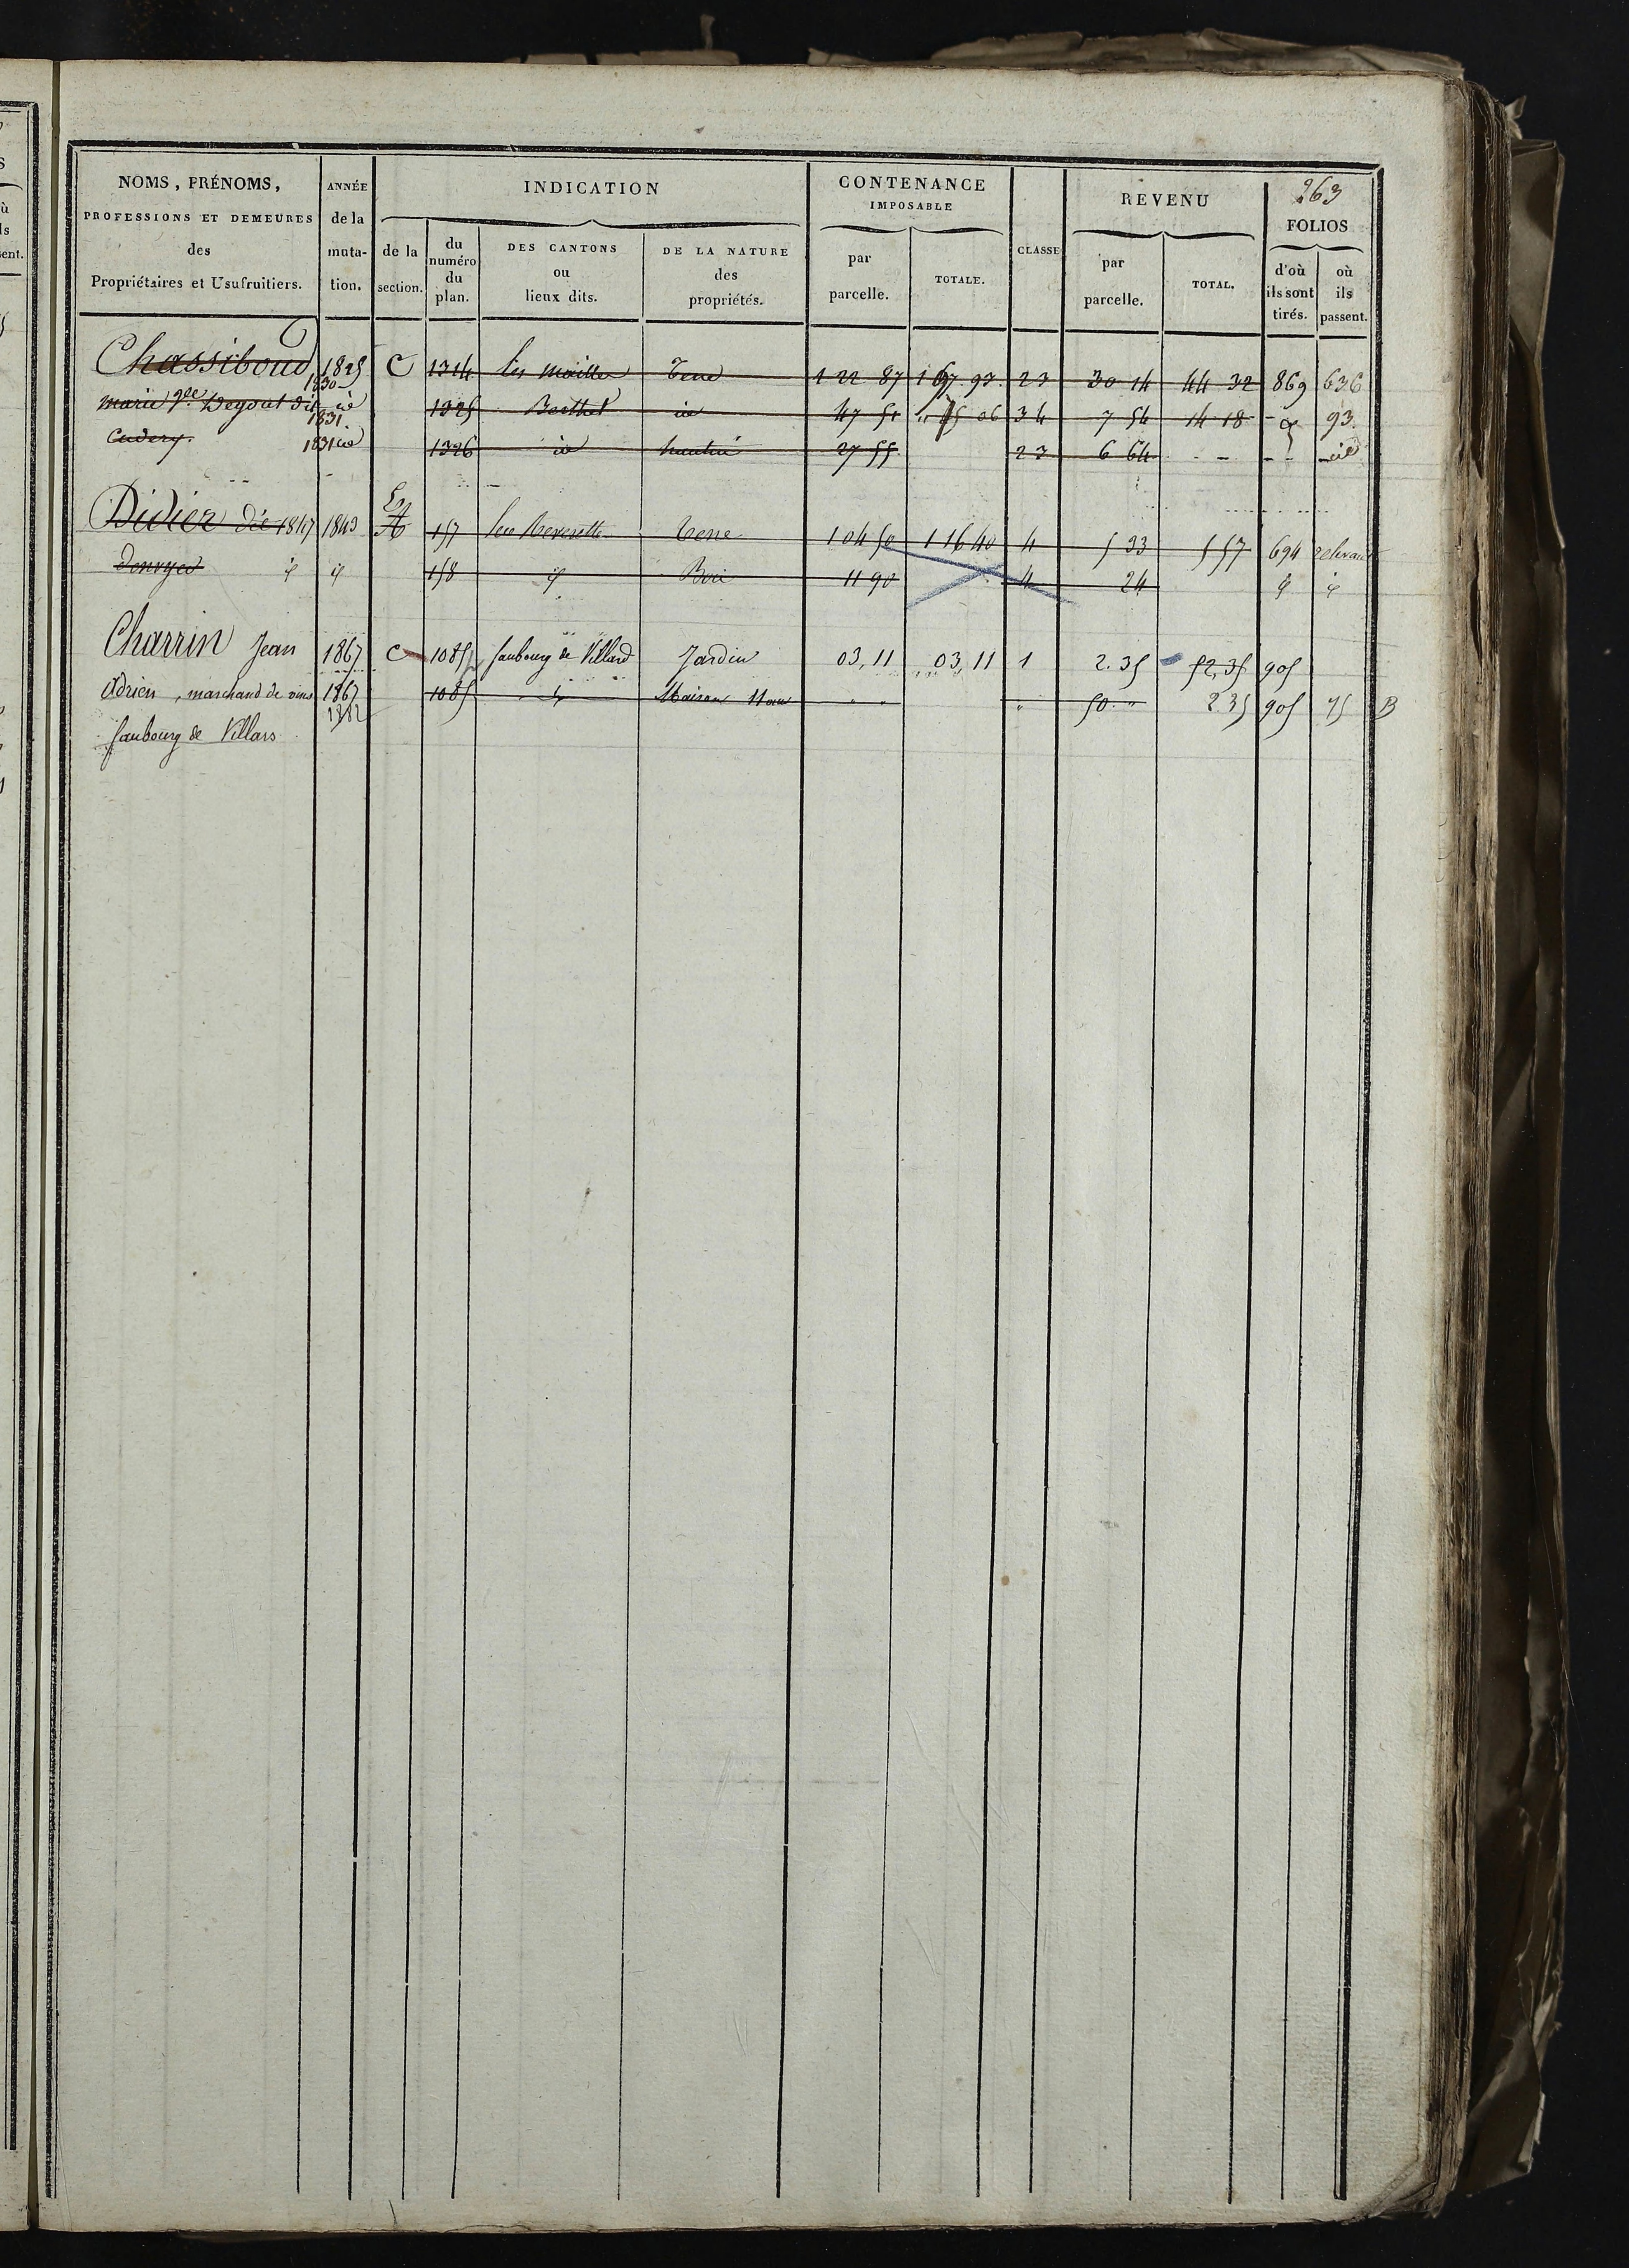 263
NOMS, PRÉNOMS, PROFESSIONS ET DEMEURES des Propriétaires et Usufruitiers.
ANNÉE de la muta- tion.
INDICATION
de la section.
du numéro du plan.
DES CANTONS ou lieux dits.
DE LA NATURE des propriétés.
CONTENANCE IMPOSABLE
par parcelle.
TOTALE.
CLASSE
REVENU
par parcelle.
TOTAL.
FOLIOS
d'où ils sont tirés.
où ils passent.
Chassiboud 1825 1830 C 1314 les Terre 1 22 87 23 30 14 44 32 869 636
marie id 1325 Berthet id 47 51 34 7 54 14 18 93
1831
1831 id 1326 id 27 55 23 6 64 id
Didier 1847 1843 A 157 Terre 1 04 50 1 16 40 4 5 33 5 57 694
158 Bois 11 90 4 24
Charrin Jean 1867 C 1085 faubourg de Villard Jardin 03,11 03,11 1 2.35 52,35 905
Adrien, marchand de vins 1867 1085 Maison " " " 50 " 2 35 905 75 B
1882
faubourg de Villars